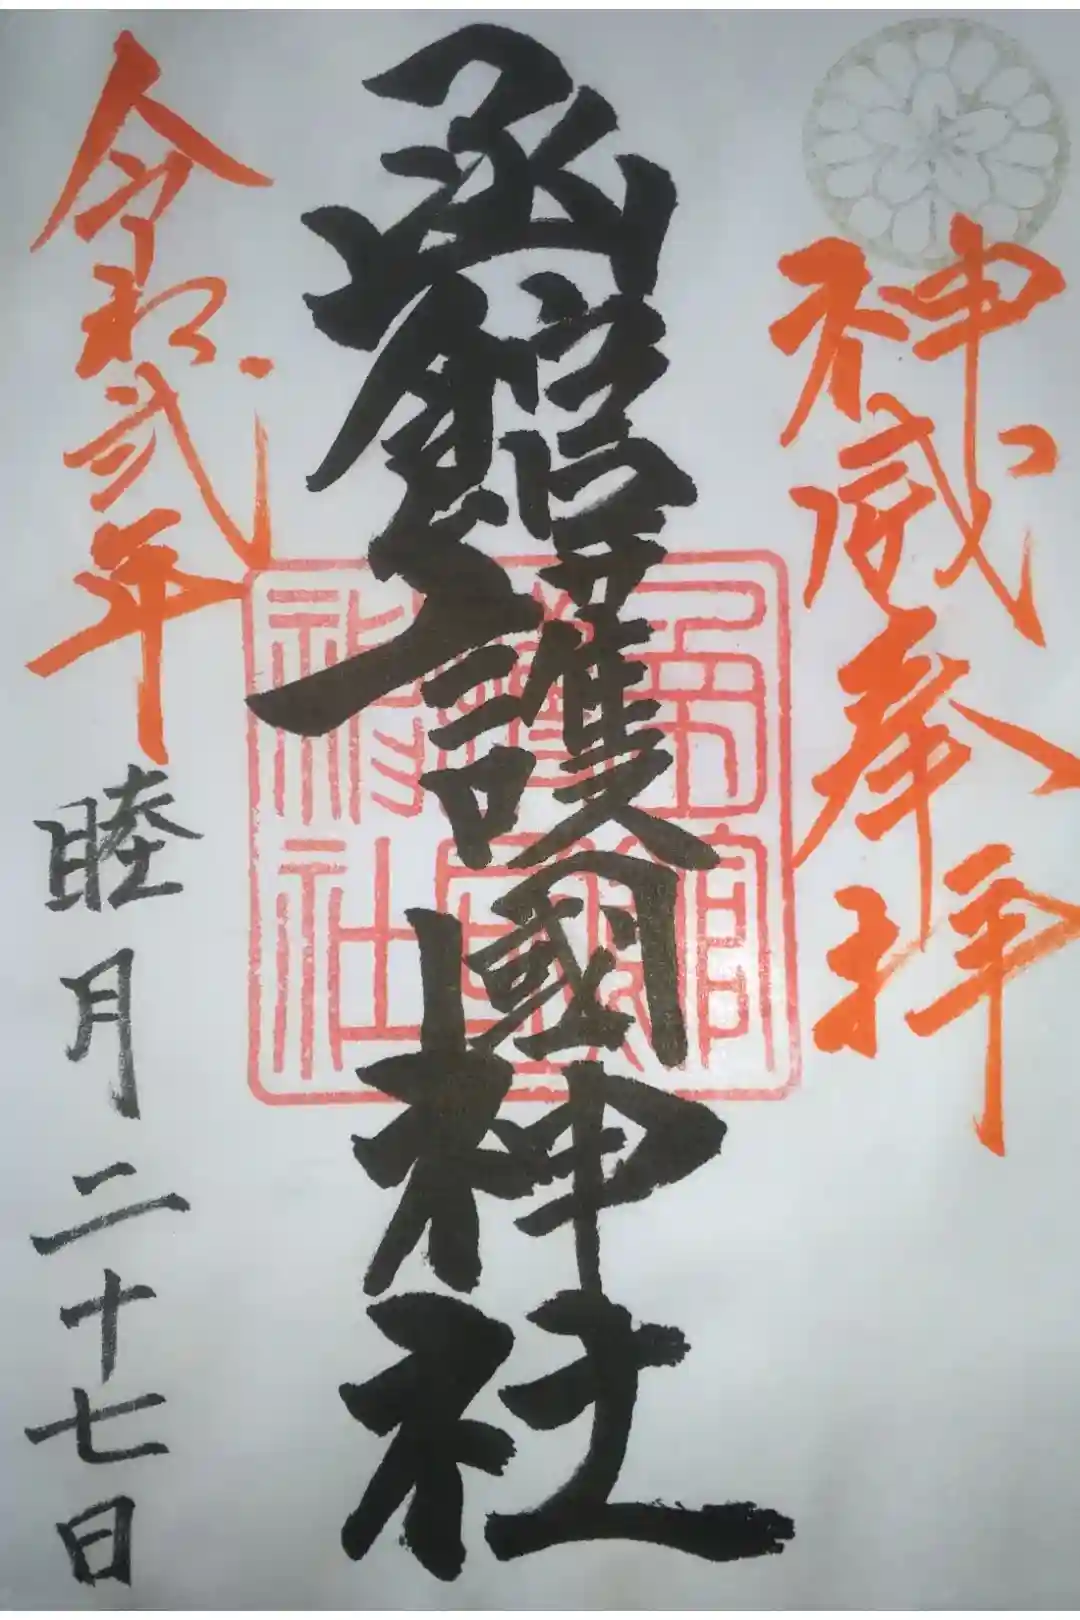 神威奉拝
函館護國神社
令和弐年
睦月二十七日
函館護國神社